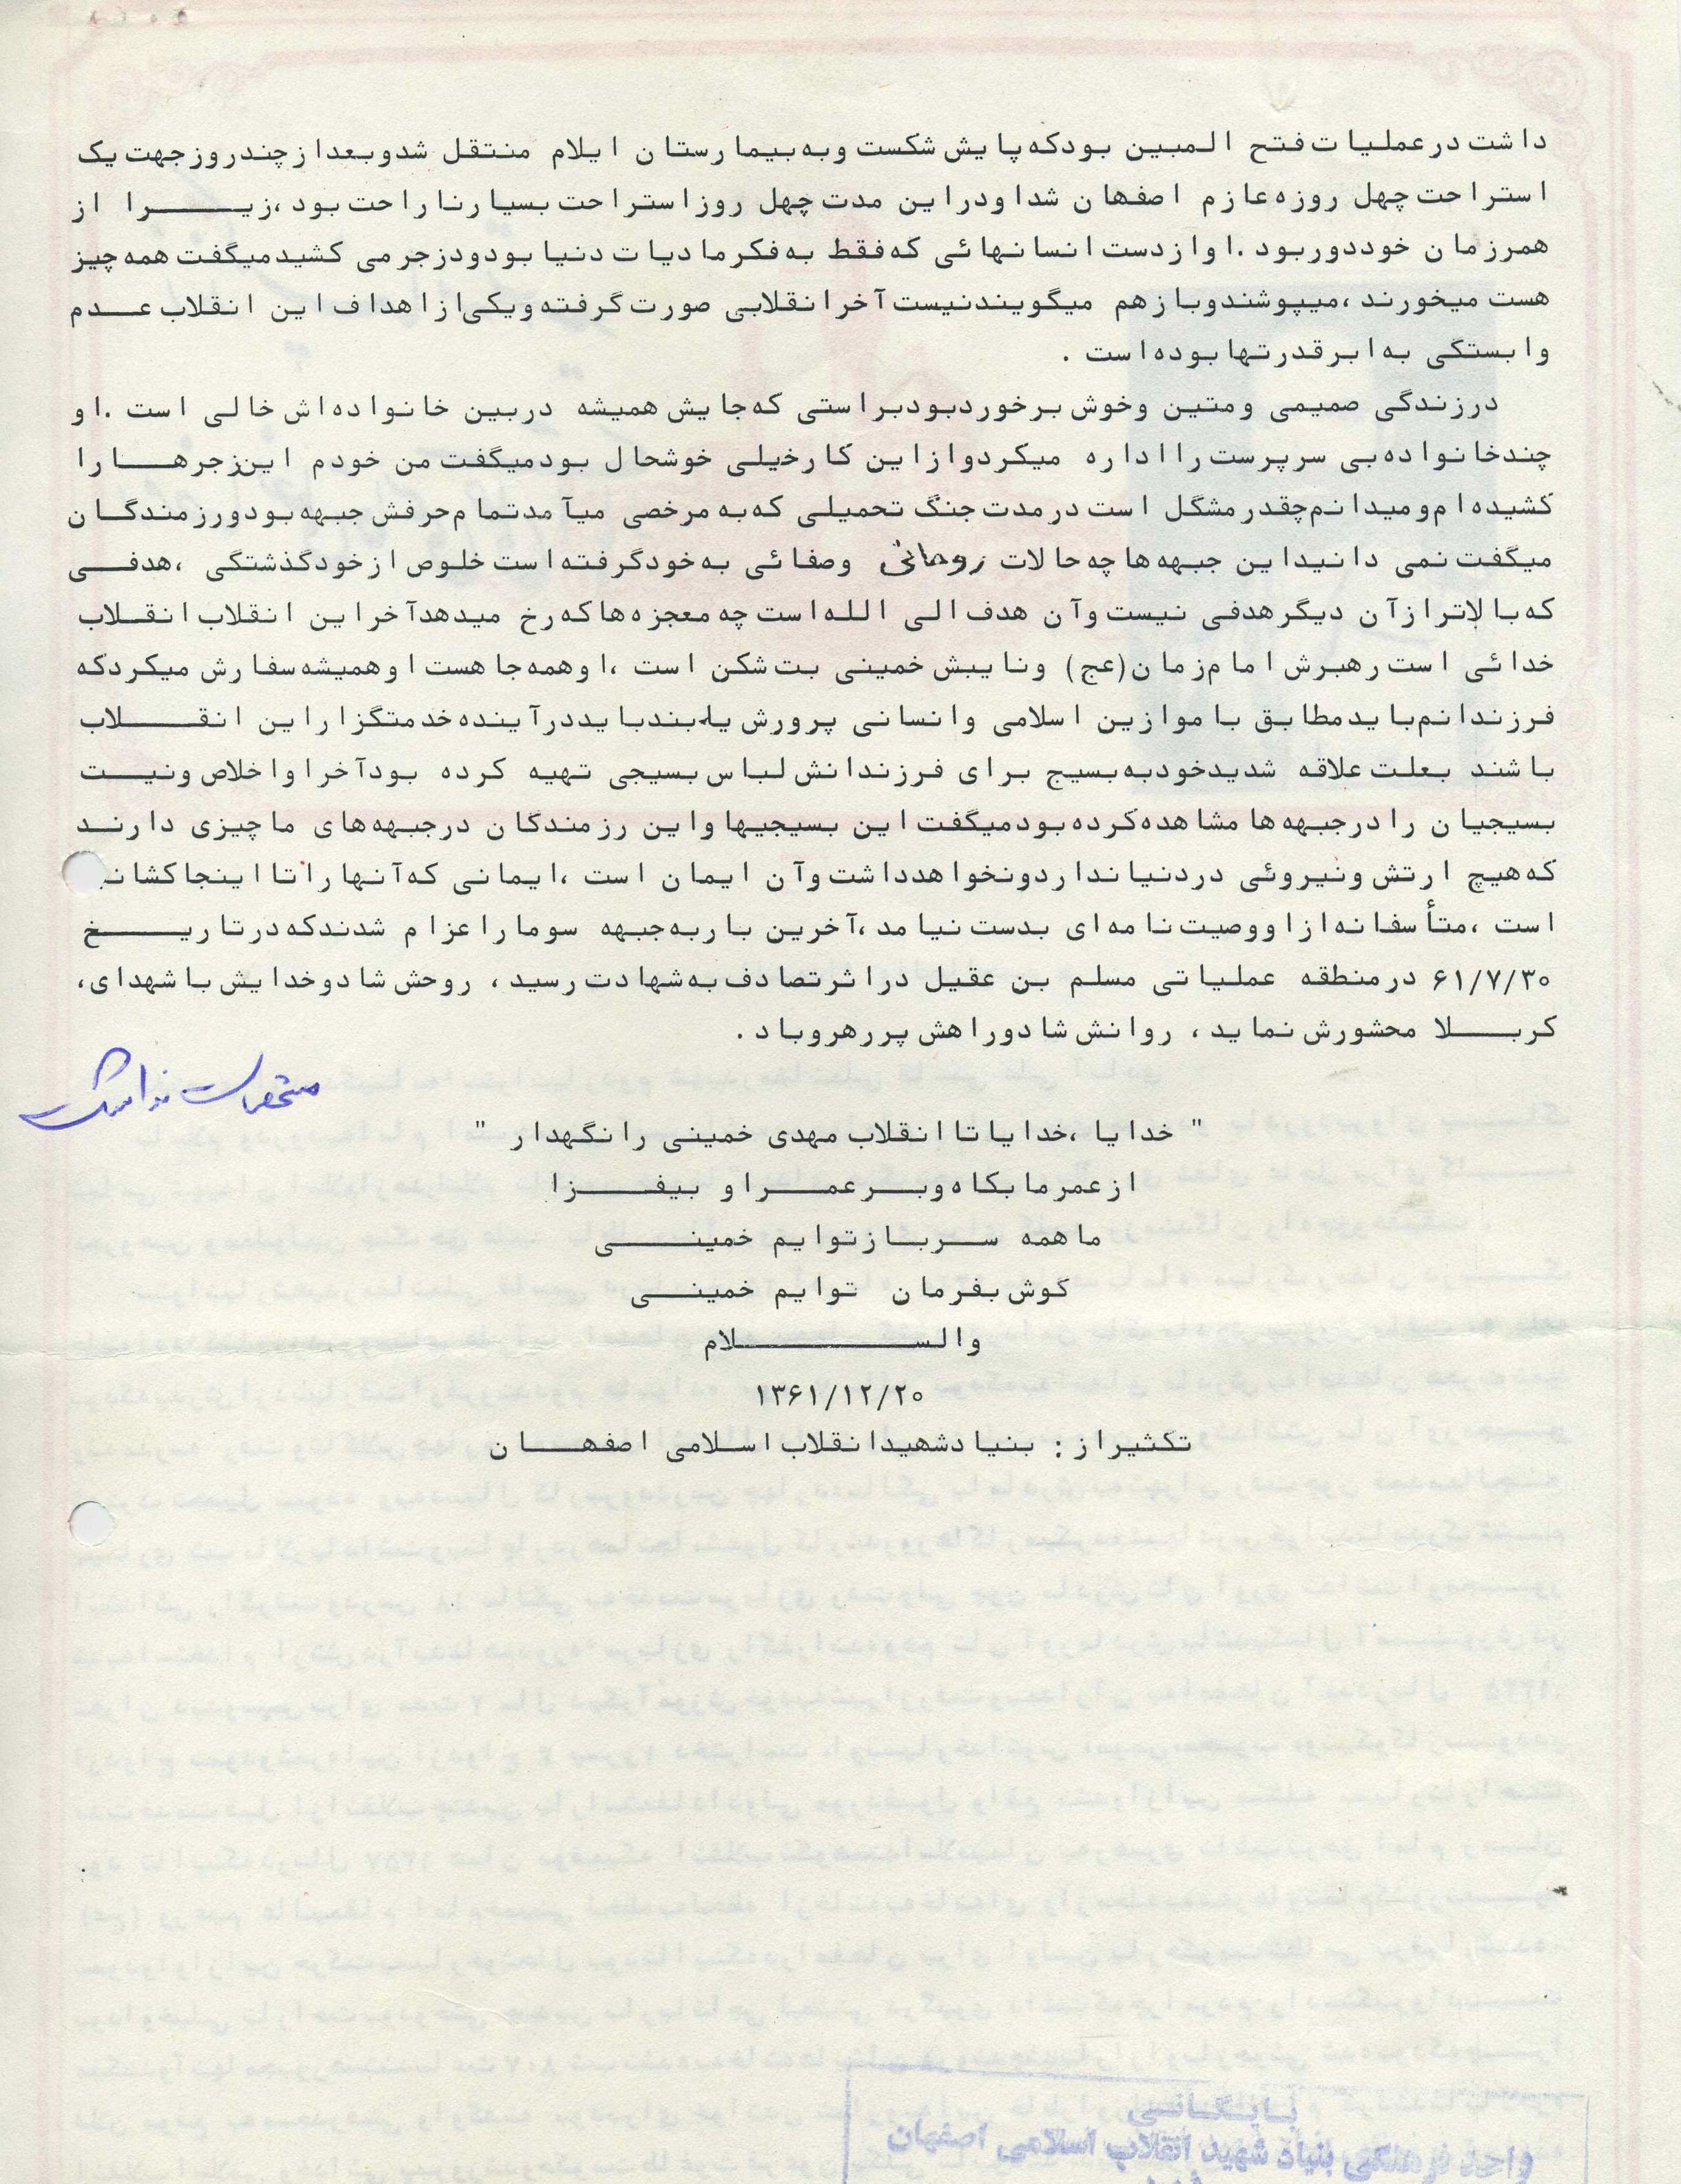 داشت درعملیات فتح المبین بودکه پایش شکست وبه بیمارستان ایلام منتقل شدوبعدازچندروزجهت یک
استراحت چهل روزه عازم اصفهان شداودراین مدت چهل روزاستراحت بسیارناراحت بود ،زیـــرا از
همرزمان خوددوربود .اوازدست انسانهائی که فقط به فکرمادیات دنیا بودودزجرمی کشیدمیگفت همه چیز
هست میخورند ،میپوشندوبازهم میگویندنیست آخرانقلابی صورت گرفته ویکی ازاهداف این انقلاب عــدم
وابستگی به ابرقدرتها بوده است .
درزندگی صمیمی ومتین وخوش برخوردبودبراستی که جایش همیشه دربین خانواده اش خالی است .او
چندخانواده بی سرپرست رااداره میکردوازاین کارخیلی خوشحال بودمیگفت من خودم این زجرهــا را
کشیده ام ومیدانم چقدرمشگل است درمدت جنگ تحمیلی که به مرخصی میآمدتمام حرفش جبهه بودورزمندگـان
میگفت نمی دانیداین جبهه ها چه حالات روحانی وصفائی به خودگرفته است خلوص ازخودگذشتگی ،هدفــی
که بالاترازآن دیگرهدفی نیست وآن هدف الی الله است چه معجزه ها که رخ میدهدآخراین انقلاب انقـلاب
خدائی است رهبرش امام زمان(عج) ونایبش خمینی بت شکن است ،اوهمه جا هست اوهمیشه سفارش میکردکه
فرزندانم بایدمطابق با موازین اسلامی وانسانی پرورش یابندبایددرآینده خدمتگزاراین انقــلاب
باشند بعلت علاقه شدیدخودبه بسیج برای فرزندانش لباس بسیجی تهیه کرده بودآخراواخلاص ونیـت
بسیجیان رادرجبهه ها مشاهده کرده بودمیگفت این بسیجیها واین رزمندگان درجبهه های ماچیزی دارنـد
که هیچ ارتش ونیروئی دردنیا نداردونخواهدداشت وآن ایمان است ،ایمانی که آنها راتا اینجا کشان
است ،متأسفانه ازاووصیت نامه ای بدست نیامد ،آخرین باربه جبهه سوماراعزام شدندکه درتاریـــخ
۶۱/۷/۳۰ درمنطقه عملیاتی مسلم بن عقیل دراثرتصادف به شهادت رسید ، روحش شادوخدایش با شهدای،
کربـــلا محشورش نماید ، روانش شادوراهش پررهروباد .
متحقرات نداشت
" خدایا ،خدایا تاانقلاب مهدی خمینی رانگهدار "
ازعمرما بکاه وبــرعمــراو بیفــزا
ماهمه ســربــازتوایم خمینــی
گوش بفرمان توایم خمینــی
والســـــلام
۱۳۶۱/۱۲/۲۰
تکثیراز: بنیادشهیدانقلاب اسـلامی اصفهــان